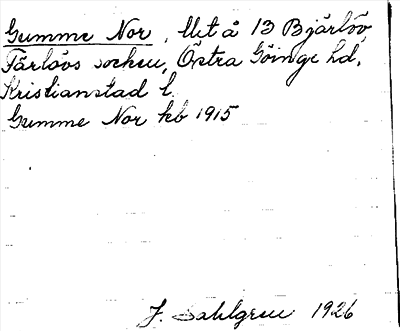 Gumme Nor, Utå 13 Bjärlöv,
Färlövs socken, Östra Göinge hd,
Kristianstad l.
Gumme Nor kb 1915
J. Sahlgren 1926